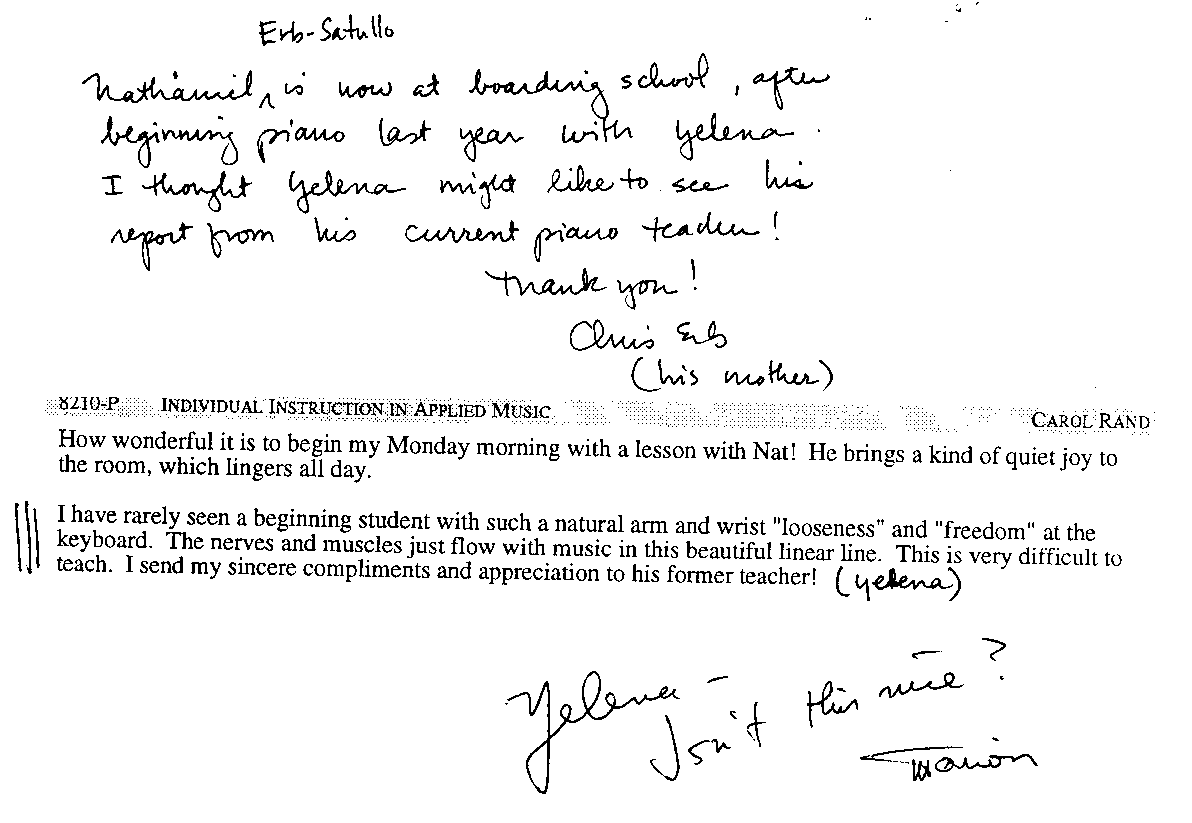 Erb-Satullo
Nathaniel ^ is now at boarding school, after
beginning piano last year with Yelena.
I thought Yelena might like to see his
report from his current piano teacher!
Thank you!
Chris Erb
(his mother)
8210-P INDIVIDUAL INSTRUCTION IN APPLIED MUSIC CAROL RAND
How wonderful it is to begin my Monday morning with a lesson with Nat! He brings a kind of quiet joy to
the room, which lingers all day.
I have rarely seen a beginning student with such a natural arm and wrist "looseness" and "freedom" at the
keyboard. The nerves and muscles just flow with music in this beautiful linear line. This is very difficult to
teach. I send my sincere compliments and appreciation to his former teacher! (Yelena)
Yelena –
Isn't this nice?
Marion